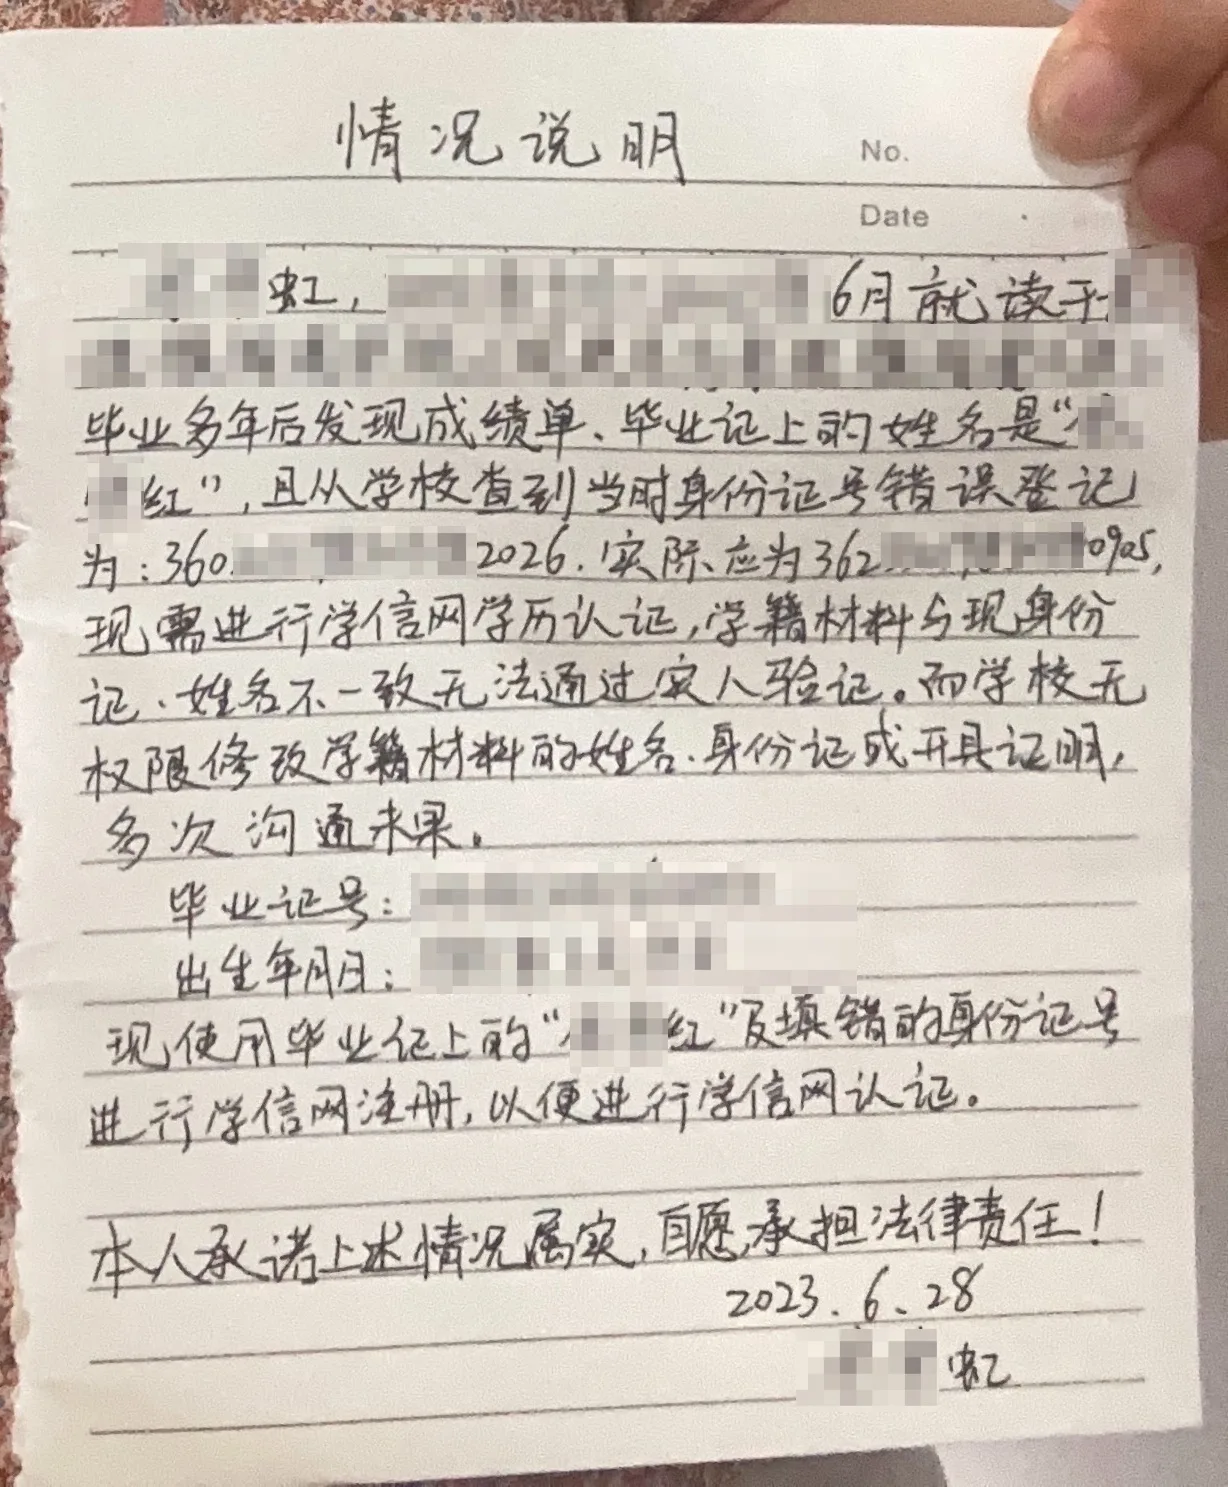 情况说明
No.
Date
虹，6月就读于
毕业多年后发现成绩单、毕业证上的姓名是“
红”，且从学校查到当时身份证号错误登记
为：360 2026.实际应为362 0905，
现需进行学信网学历认证，学籍材料与现身份
证、姓名不一致无法通过实人验证。而学校无
权限修改学籍材料的姓名、身份证或开具证明，
多次沟通未果。
毕业证号：
出生年月日：
现使用毕业证上的“红”及填错的身份证号
进行学信网注册，以便进行学信网认证。
本人承诺上述情况属实，自愿承担法律责任！
2023.6.28
虹